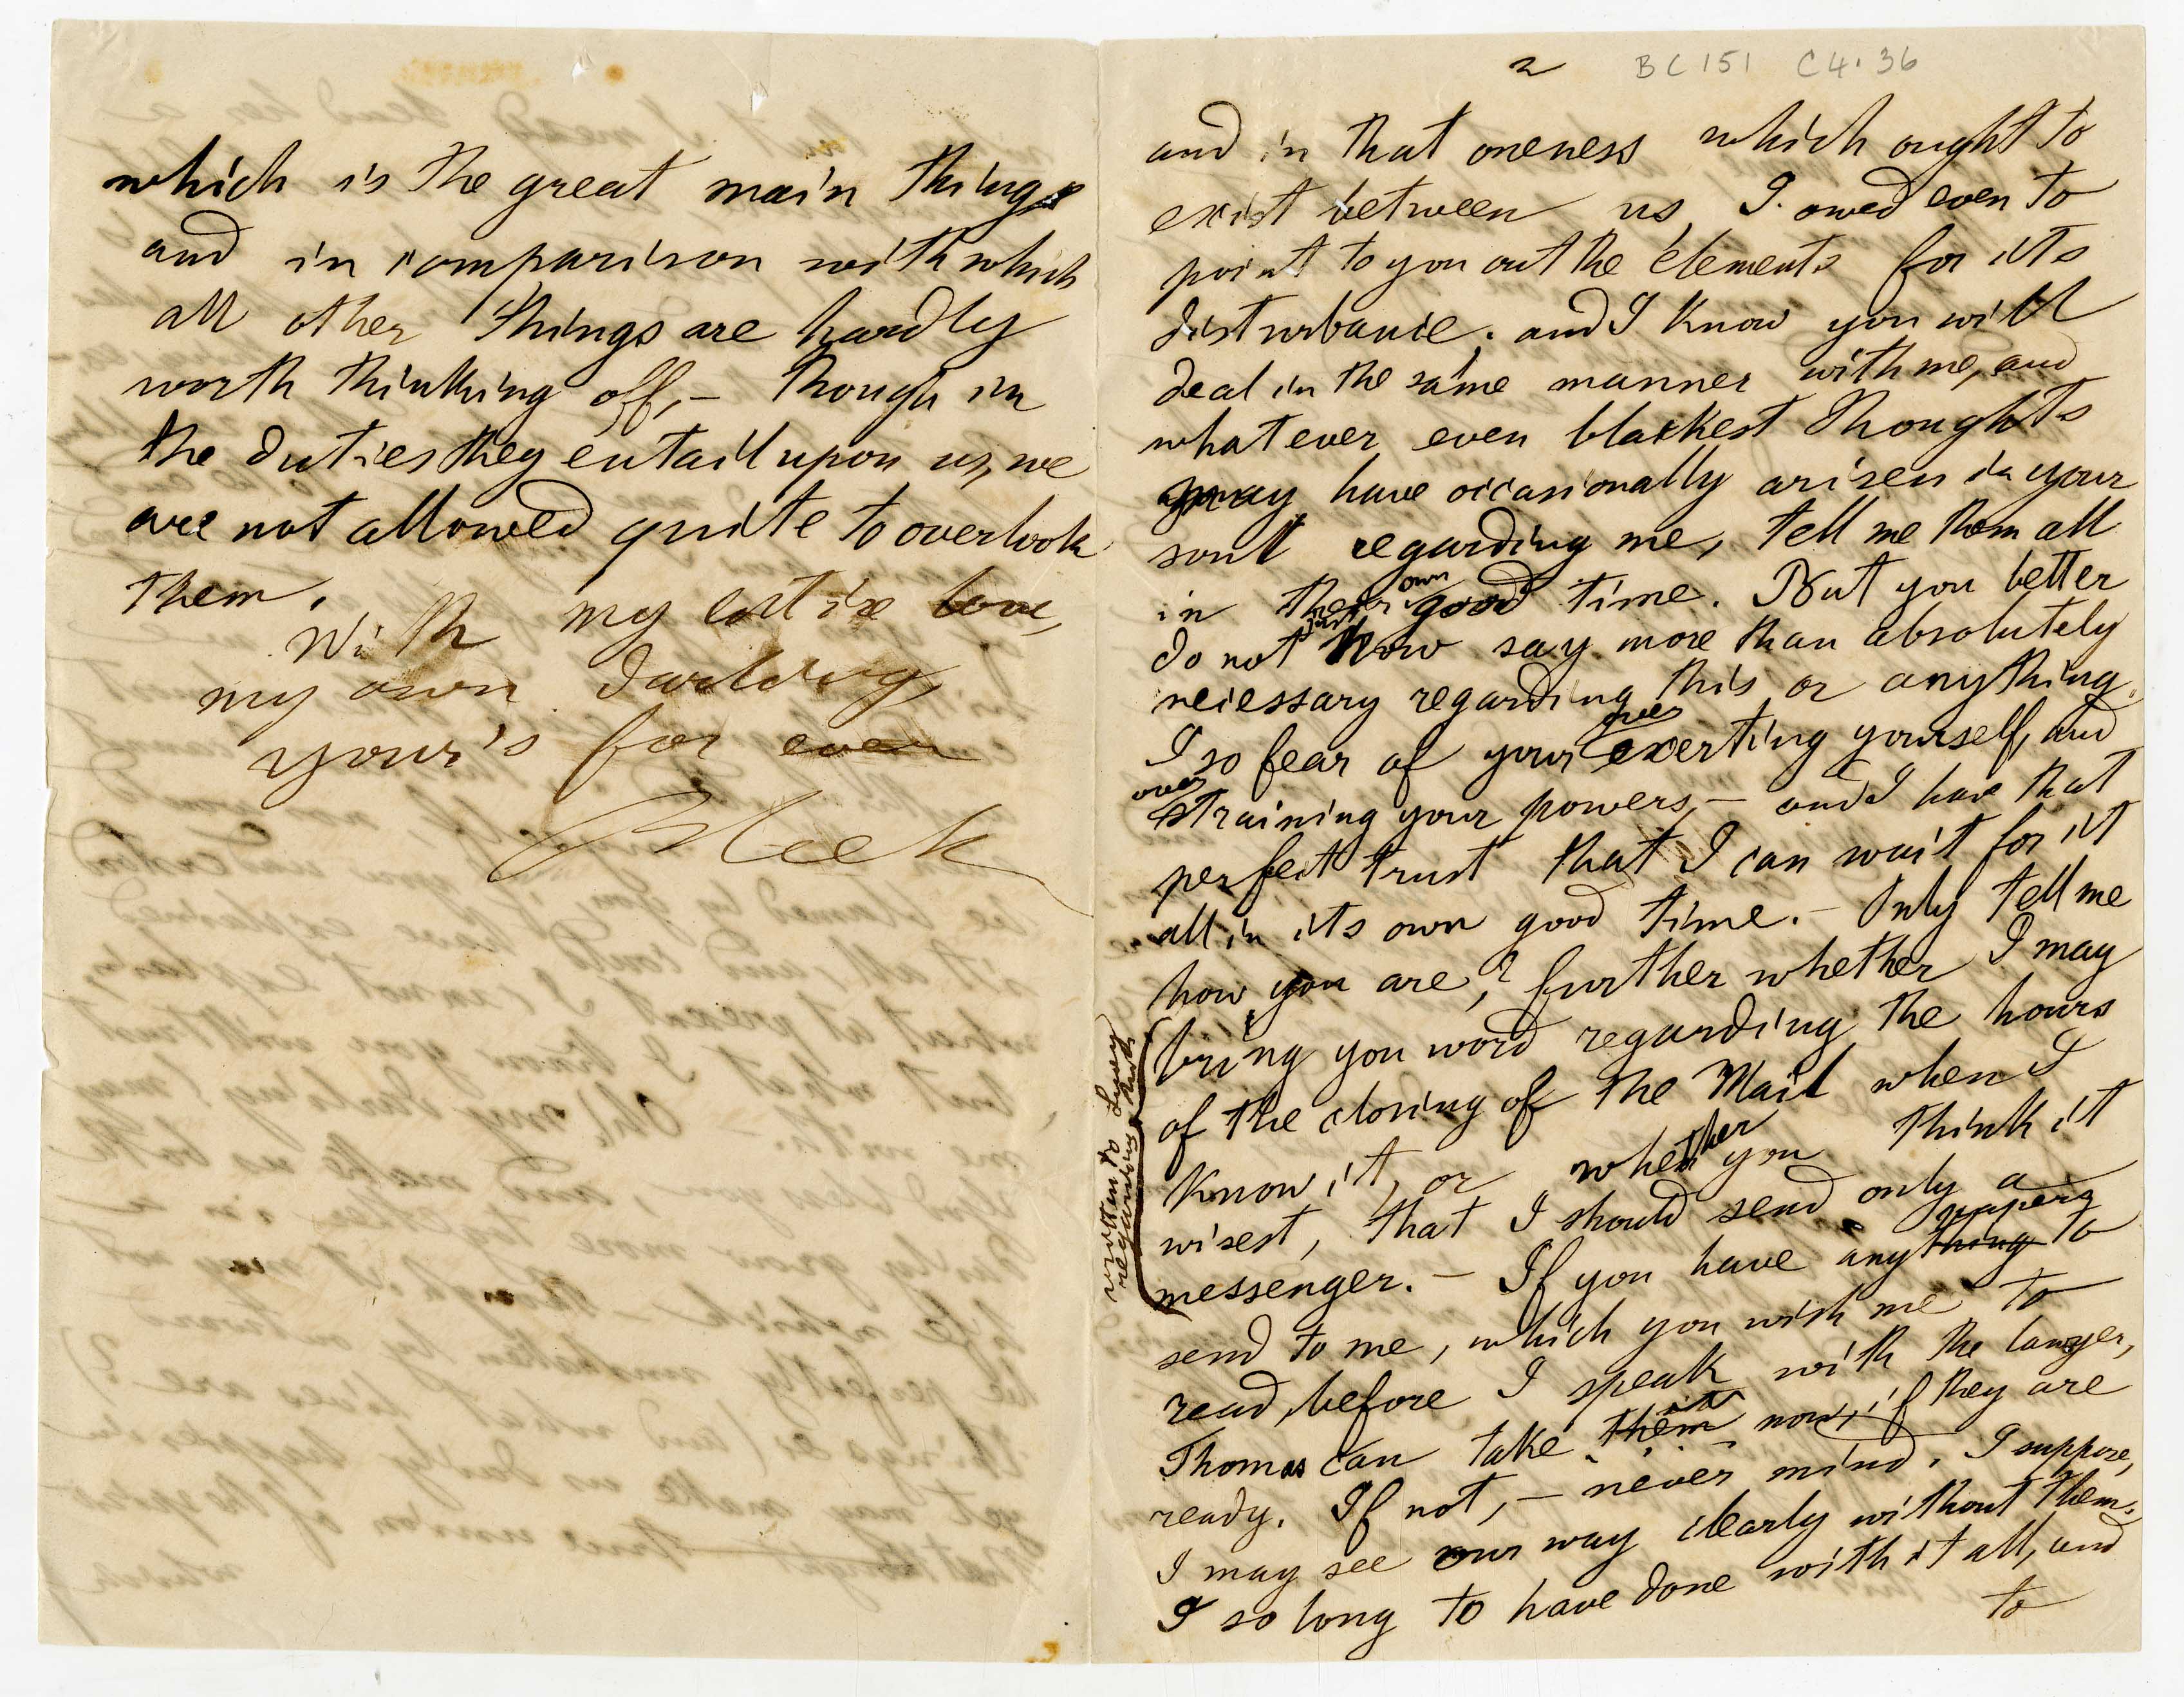 which is the great main thing,
and in comparison with which
all other things are hardly
worth thinking off, – though in
the duties they entail upon us, we
are not allowed quite to overlook
them.
With my entire love,
my own darling
your's for ever
Bleek
2 BC 151 C4.36
and in that oneness which ought to
exist between us, I owed even to
point to you out the elements for its
disturbance. and I know you will
deal in the same manner with me, and
whatever even blackest thoughts
may have occasionally arisen in your
soul regarding me, tell me them all
in their own good time. But you better
do not just now say more than absolutely
necessary regarding this or anything.
I so fear of your over exerting yourself, and
over straining your powers, – and I have that
perfect trust that I can wait for it
all in its own good time. – Only tell me
how you are? further whether I may
bring you word regarding the hours
of the closing of the Mail when I
know it, or whether you think it
wisest, that I should send only a
messenger. – If you have any thing papers to
send to me, which you wish me to
read, before I speak with the lawyer,
Thomas can take them now, if they are
ready. If not, – never mind. I suppose,
I may see our way clearly without them.
I so long to have done with it all, and
to
written to
regarding